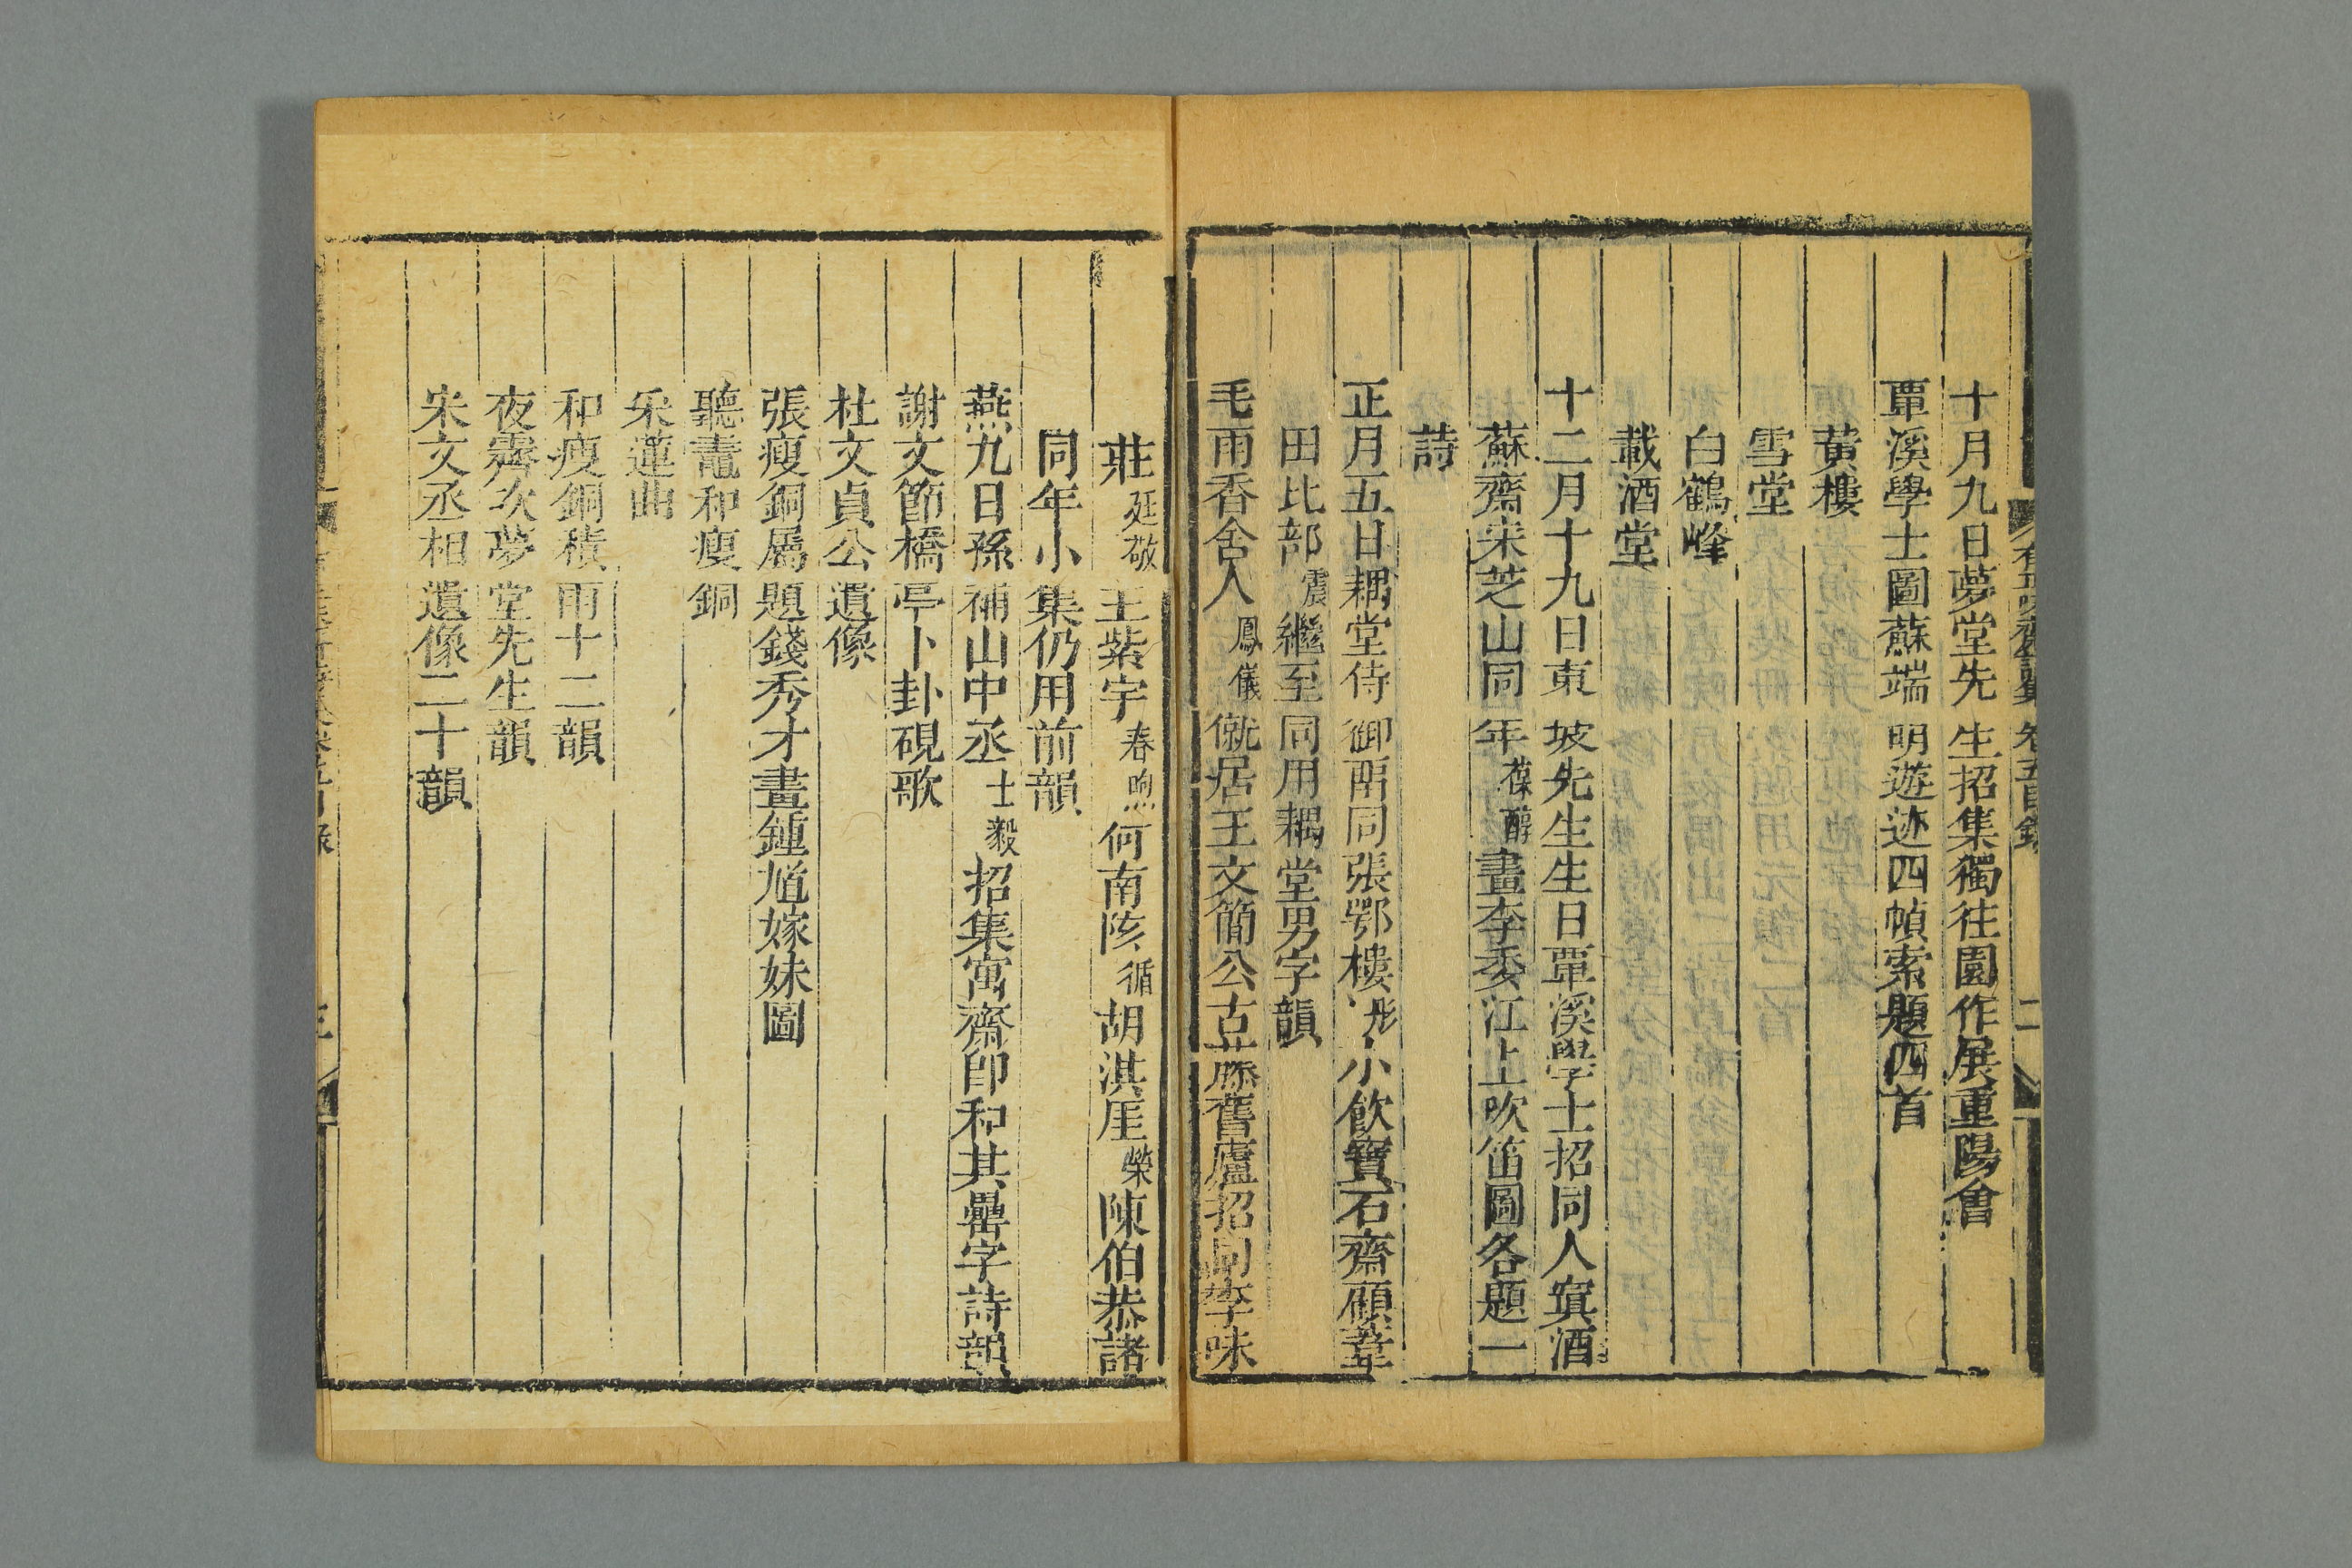 十月九日夢堂先生招集獨往園作展重陽會
覃溪學士圖蘇端明遊迹四幀索題四首
黃樓
雪堂
白鶴峰
載酒堂
十二月十九日東坡先生生日覃溪學士招同人寘酒
蘇齋宋芝山同年葆醇畫李委江上吹笛圖各題一
詩
正月五日耦堂侍御邸同張鄂樓彤小飲寶石齋顧葦
田比部震繼至同用耦堂男字韻
毛雨香舍人鳳儀僦居王文簡公古藤舊廬招同李味
莊廷敬王紫宇春煦何南陔循胡淇厓榮陳伯恭諸
同年小集仍用前韻
燕九日孫補山中丞士毅招集寓齋即和其罍字詩韻
謝文節橋亭卜卦硯歌
杜文貞公遺像
張瘦銅屬題錢秀才畫鍾馗嫁妹圖
聽鼃和瘦銅
采蓮曲
和瘦銅積雨十二韻
夜霽次夢堂先生韻
宋文丞相遺像二十韻